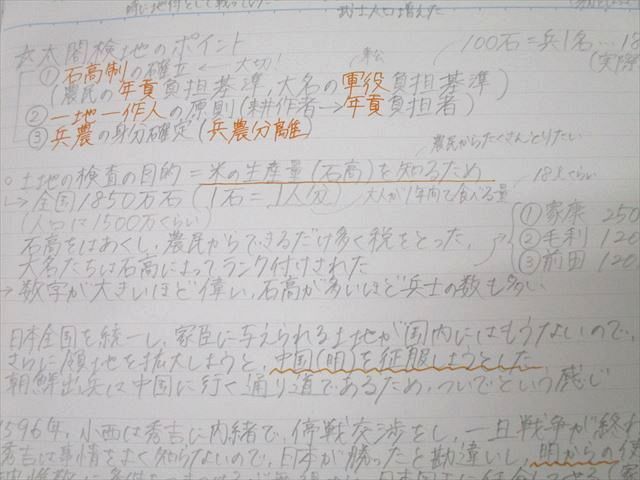 武士人口増えた
☆太閤検地のポイント
100石=兵1名…
① 石高制の確立 ← 大切!
(農民の年貢負担基準, 大名の軍役負担基準)
② 一地一作人の原則(耕作者→年貢負担者)
③ 兵農の身分確定(兵農分離)
農民からたくさんとりたい
○土地の検査の目的=米の生産量(石高)を知るため
↳全国1850万石 (1石=1人分) 大人が1年間で食べる量
(人口は1500万くらい)
石高をはあくし, 農民からできるだけ多く税をとった,
大名たちは石高によってランク付けされた
→ 数字が大きいほど偉い, 石高が多いほど兵士の数も多い
① 家康 250
② 毛利 120
③ 前田 120
日本全国を統一し, 家臣に与えられる土地が国内にはもうないので,
さらに領地を拡大しようと, 中国(明)を征服しようとした
朝鮮出兵は中国に行く通り道であるため, ついでという感じ
1596年, 小西は秀吉に内緒で, 停戦交渉をし, 一旦戦争が終わ
秀吉は事情をよく知らないので, 日本が勝ったと勘違いし, 明からの